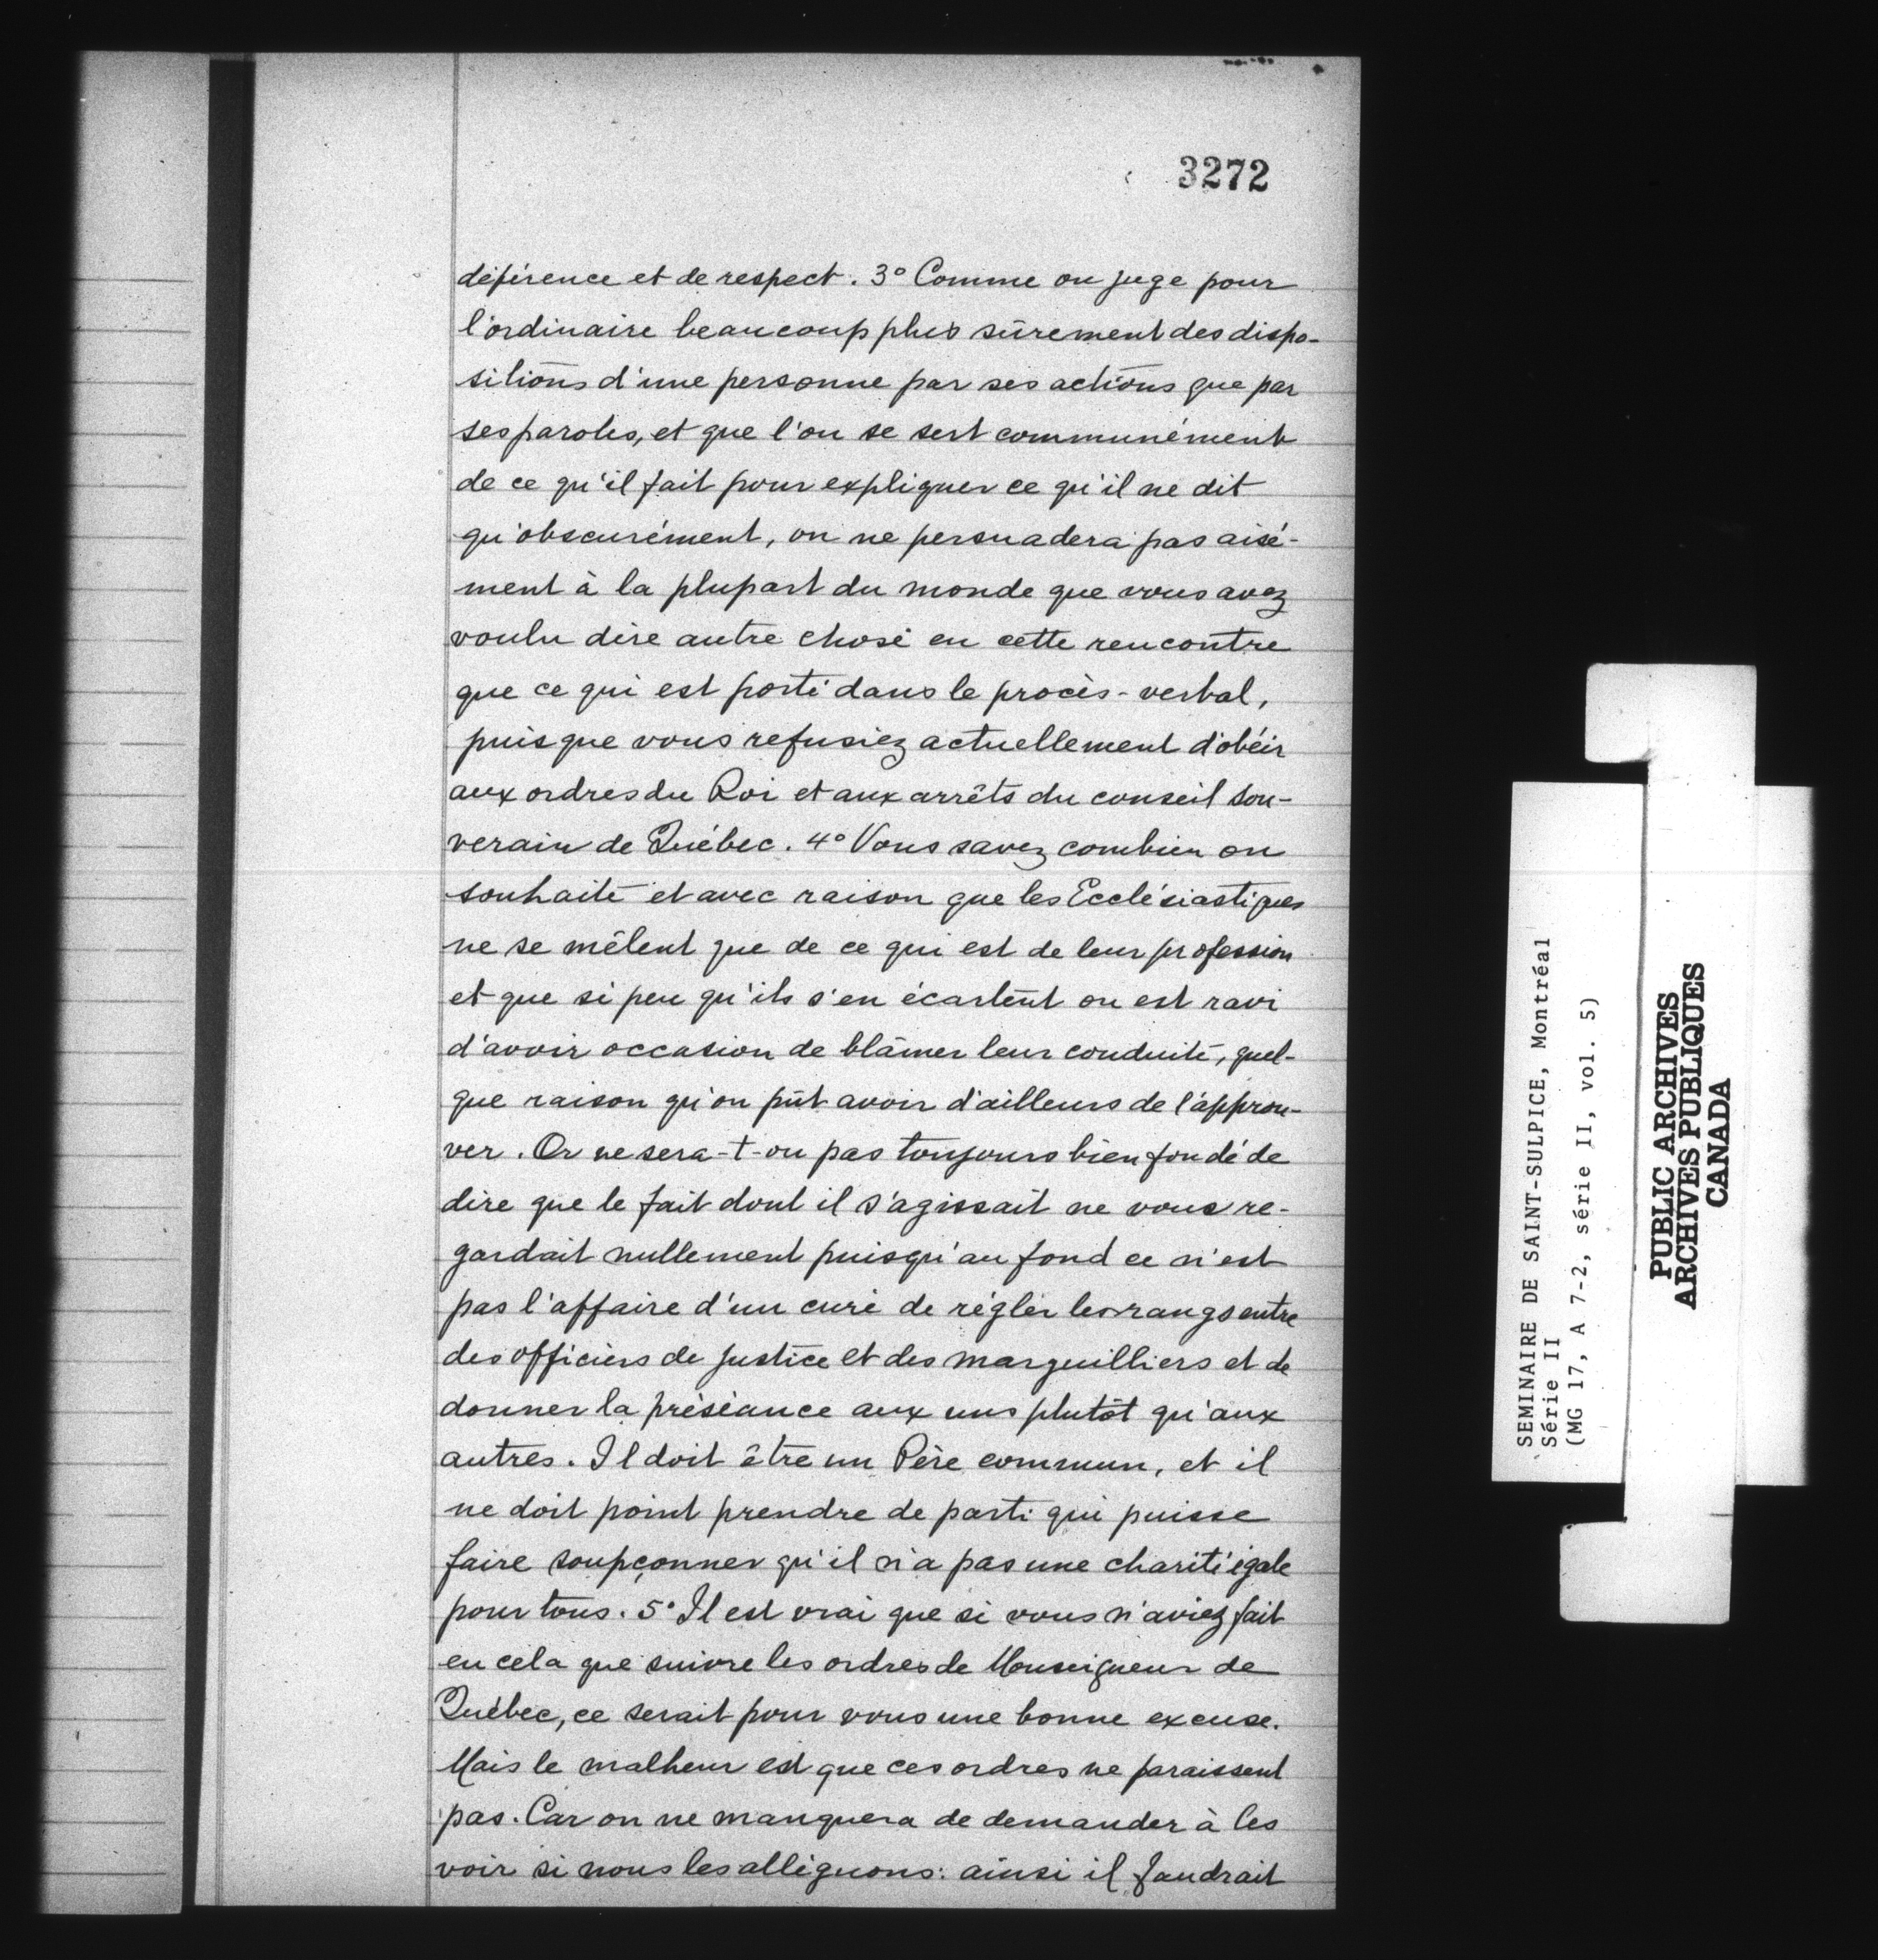 3272
déférence et de respect. 3° Comme on juge pour
l'ordinaire beaucoup plus sûrement des dispo-
sitions d'une personne par ses actions que par
ses paroles, et que l'on se sert communément
de ce qu'il fait pour expliquer ce qu'il ne dit
qu'obscurément, on ne persuadera pas aisé-
ment à la plupart du monde que vous avez
voulu dire autre chose en cette rencontre
que ce qui est porté dans le procès-verbal,
puisque vous refusiez actuellement d'obéir
aux ordres du Roi et aux arrêts du conseil sou-
verain de Québec. 4° Vous savez combien on
souhaite et avec raison que les Ecclésiastiques
ne se mêlent que de ce qui est de leur profession
et que si peu qu'ils s'en écartent on est ravi
d'avoir occasion de blâmer leur conduite, quel-
que raison qu'on pût avoir d'ailleurs de l'approu-
ver. Or ne sera-t-on pas toujours bien fondé de
dire que le fait dont il s'agissait ne vous re-
gardait nullement puisqu'au fond ce n'est
pas l'affaire d'un curé de régler les rangs entre
des officiers de justice et des marguilliers et de
donner la préséance aux uns plutôt qu'aux
autres. Il doit être un Père commun, et il
ne doit point prendre de parti qui puisse
faire soupçonner qu'il n'a pas une charité égale
pour tous. 5° Il est vrai que si vous n'aviez fait
en cela que suivre les ordres de Monseigneur de
Québec, ce serait pour vous une bonne excuse.
Mais le malheur est que ces ordres ne paraissent
pas. Car on ne manquera de demander à les
voir si nous les alléguons: ainsi il faudrait
SEMINAIRE DE SAINT-SULPICE, Montréal
Série II
(MG 17, A 7-2, série II, vol. 5)
PUBLIC ARCHIVES
ARCHIVES PUBLIQUES
CANADA